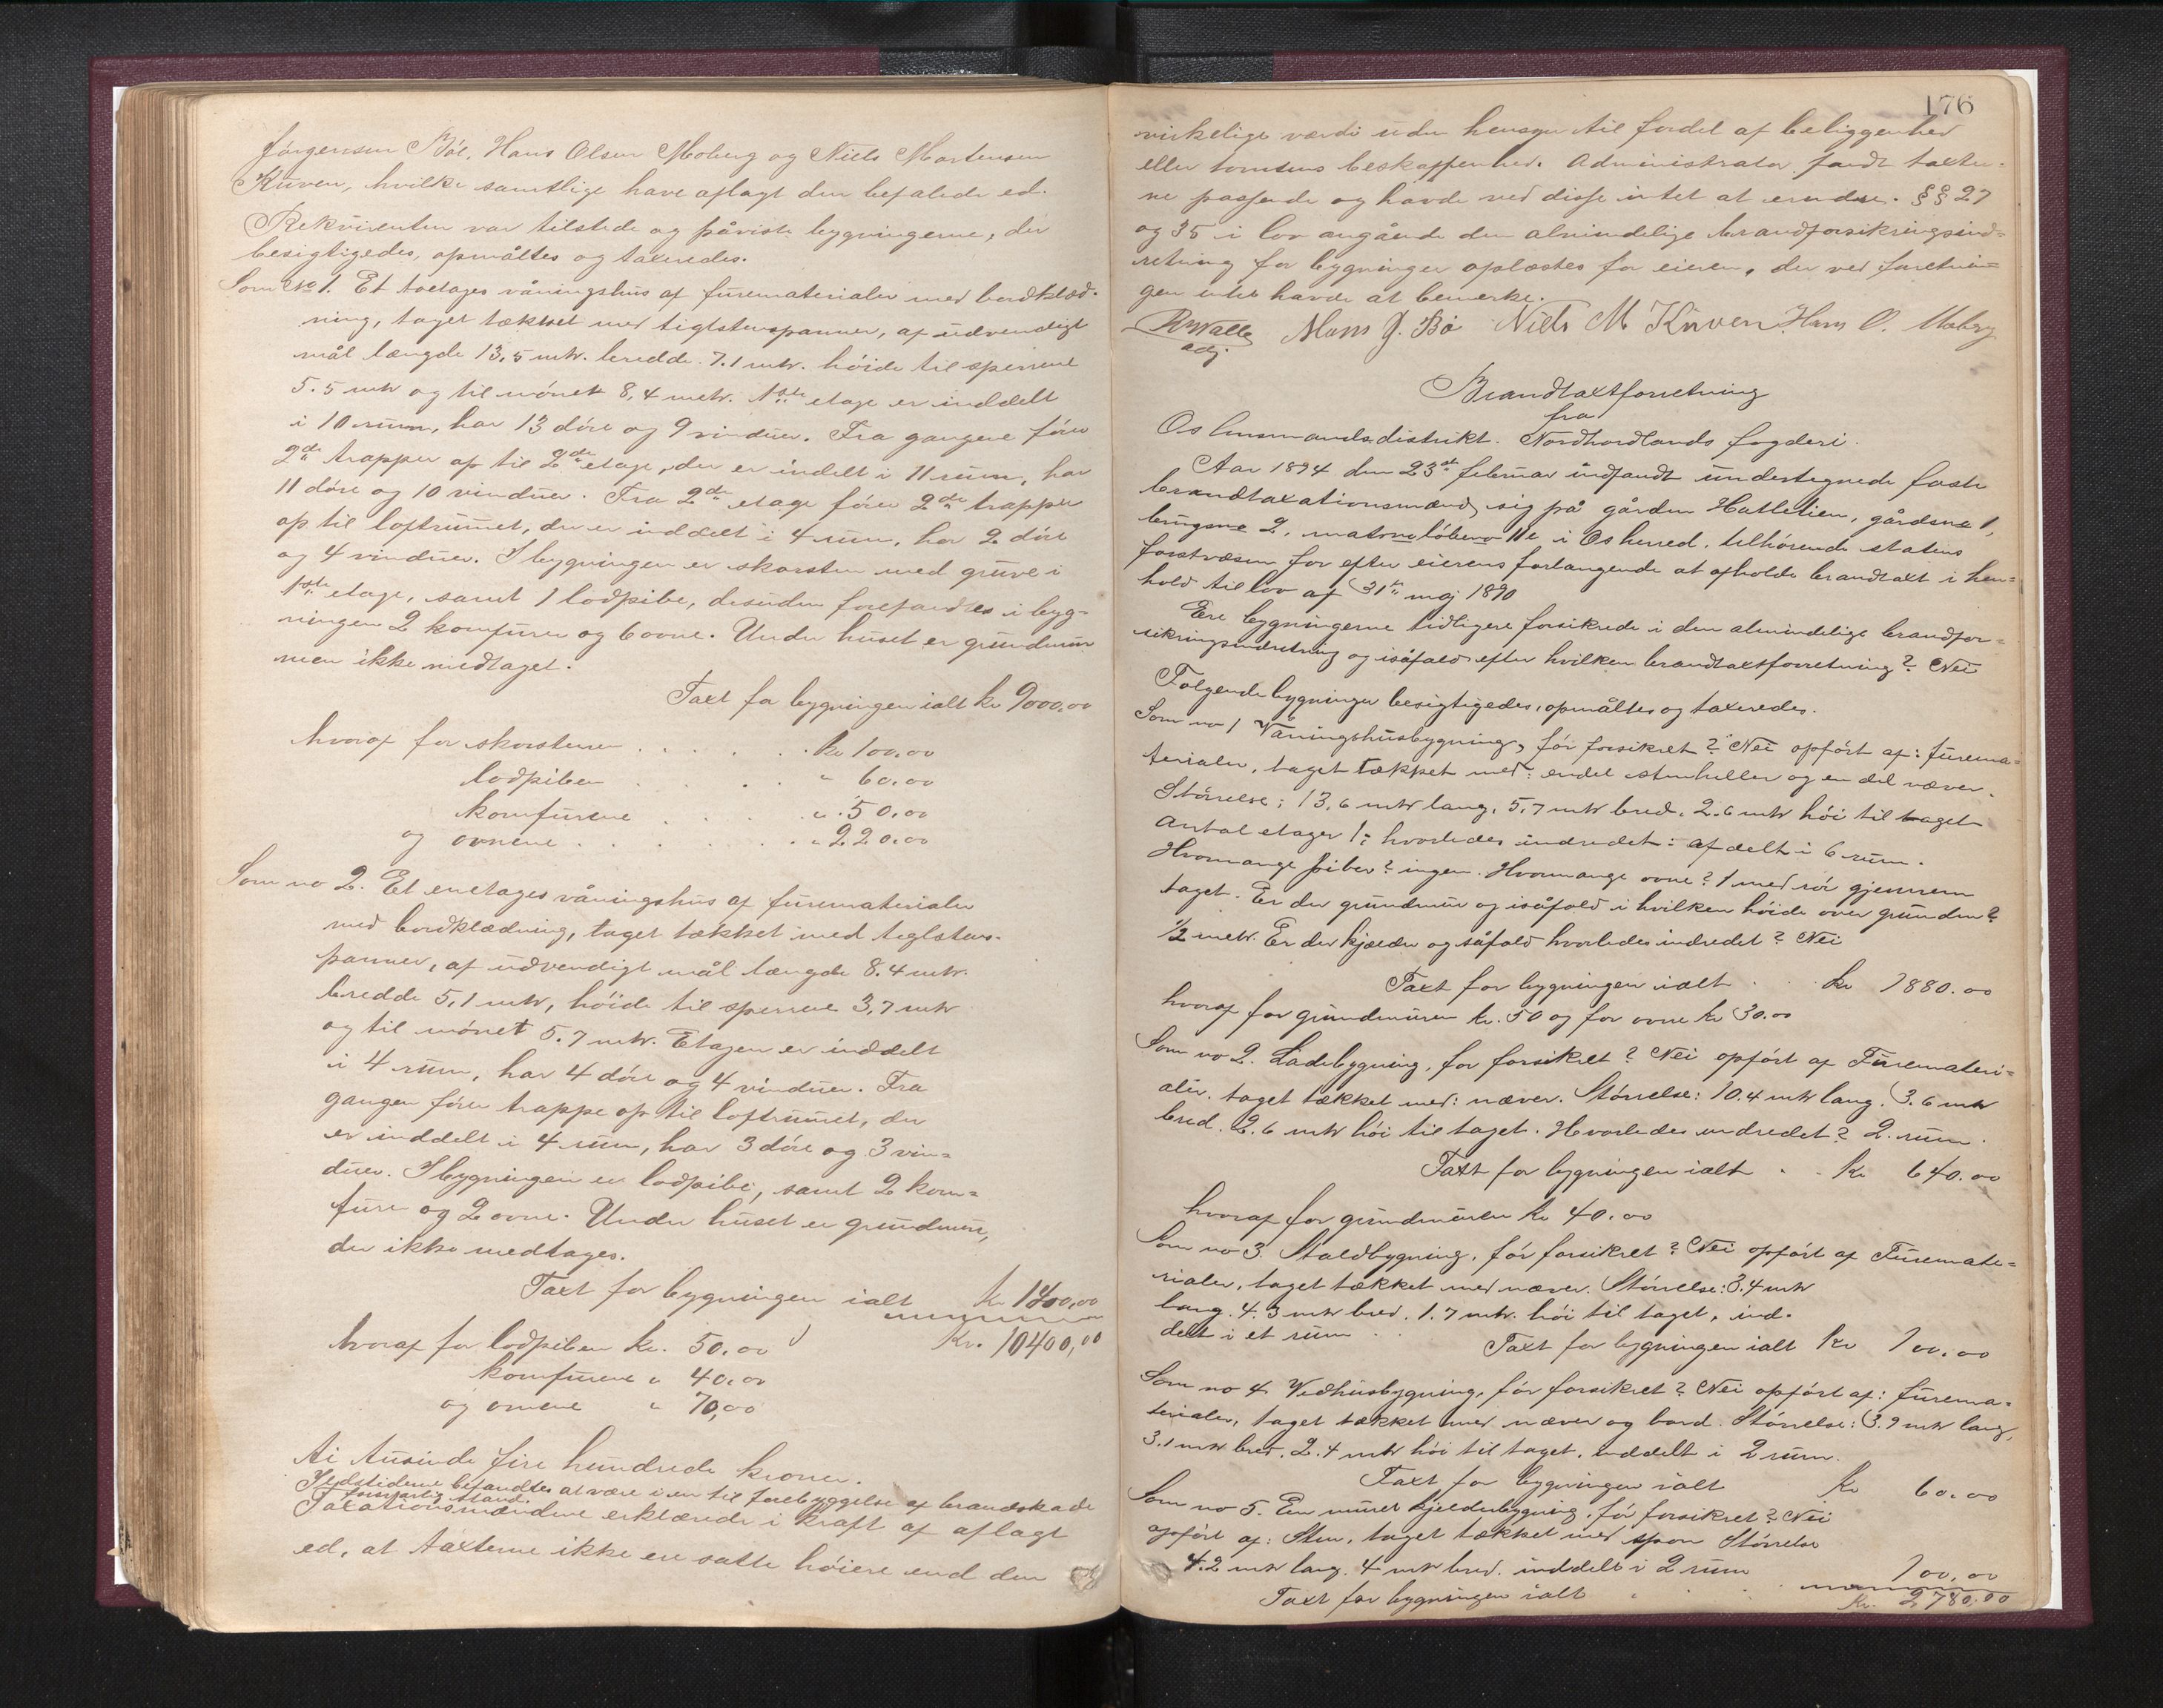 Jørgensen Bøe, Hans Olsen Moberg og Niels Mortensen
Kuven, hvilke samtlige have aflagt den befalede ed.
Rekvirenten var tilstede og påviste bygningerne, der
besigtigedes, opmåltes og taxeredes.
Som No 1. Et toetages våningshus af furematerialer med bordklæd-
ning, taget tækket med tiglstenspanner, af udvendigt
mål længde 13,5 mtr. bredde 7.1 mtr. høide til sperrene
5.5 mtr og til mønet 8,4 metr. 1ste etage er inddelt
i 10 rum, har 13 døre og 9 vinduer. Fra gangene fører
2de trapper op til 2den etage, der er indelt i 11 rum, har
11 døre og 10 vinduer. Fra 2den etage fører 2de trapper
op til loftrummet, der er inddelt i 4 rum, har 2 døre
og 4 vinduer. I bygningen er skorsten med gruve i
1ste etage, samt 1 lodpibe, desuden forefandtes i byg-
ningen 2 komfurer og 6 ovne. Under huset er grundmur
men ikke medtaget.
Taxt for bygningen ialt kr 9000,00
hvoraf for skorstenen . . . . . kr 100,00
lodpiben . . . . " 60.00
komfurene . . . . " 50.00
og ovnene . . . . . " 220.00
Som no 2. Et enetages våningshus af furematerialer
med bordklædning, taget tækket med teglstens-
panner, af udvendigt mål længde 8.4 mtr.
bredde 5,1 mtr, høide til sperrene 3,7 mtr
og til mønet 5.7 mtr. Etagen er inddelt
i 4 rum, har 4 døre og 4 vinduer. Fra
gangen fører trappe op til loftrummet, der
er inddelt i 4 rum, har 3 døre og 3 vin-
duer. I bygningen er lodpibe, samt 2 kom-
fure og 2 ovne. Under huset er grundmur,
der ikke medtages.
Taxt for bygningen ialt kr 1400,00
Kr. 10400,00
hvoraf for lodpiben kr. 50.00
komfurene " 40.00
og ovnene " 70,00
Ti tusinde fire hundrede kroner.
Ildstederne befandtes at være i en til forebyggelse af brandskade
forsvarlig stand.
Taxationsmændene erklærede i kraft af aflagt
ed, at taxterne ikke er satte høiere end den
176
virkelige værdi uden hensyn til fordel af beliggenhed
eller tomtens beskaffenhed. Administrator fandt taxter-
ne passende og havde ved disse intet at erindre. §§ 27
og 35 i lov angående den almindelige brandforsikringsind-
retning for bygninger oplæstes for eieren, der ved forretnin-
gen intet havde at bemerke.
Mons J. Bø Niels M Kuven Hans O. Moberg
adj.
Brandtaxtforretning
fra
Os lensmandsdistrikt. Nordhordlands fogderi.
Aar 1894 den 23de februar indfandt undertegnede faste
brandtaxationsmænd sig på gården Hatlelien, gårdsno 1,
brugsno 2, matr no løbeno 11e i Os herred, tilhørende statens
forstvæsen for efter eierens forlangende at afholde brandtaxt i hen-
hold til lov af 31te maj 1890
Ere bygningerne tidligere forsikrede i den almindelige brandfor-
sikringsindretning og isåfald efter hvilken brandtaxtforretning? Nei
Følgende bygninger besigtigedes, opmåltes og taxeredes.
Som no 1 Våningshusbygning, før forsikret? Nei opført af: furema-
terialer, taget tækket med: endel stenheller og en del næver.
Størrelse: 13.6 mtr lang, 5,7 mtr bred, 2.6 mtr høi til taget
Antal etager 1: hvorledes indredet: afdelt i 6 rum.
Hvormange piber? ingen. Hvormange ovne? 1 med rør gjennem
taget. Er der grundmur og isåfald i hvilken høide over grunden?
1/2 metr. Er der kjælder og såfald hvorledes indredet? Nei
Taxt for bygningen ialt . . kr 1880.00
hvoraf for grundmuren kr. 50 og for ovne kr 30.00
Som no 2. Ladebygning, før forsikret? Nei opført af Furemateri-
aler, taget tækket med: næver. Størrelse: 10.4 mtr lang. 3.6 mtr
bred. 2.6 mtr høi til taget. Hvorledes indredet? 2 rum.
Taxt for bygningen ialt . . kr 640.00
hvoraf for grundmuren kr 40.00
Som no 3. Staldbygning, før forsikret? Nei opført af Furemate-
rialer, taget tækket med næver. Størrelse: 3.4 mtr
lang. 4.3 mtr bred. 1.7 mtr. høi til taget, ind-
delt i et rum . .
Taxt for bygningen ialt kr 100.00
Som no 4 Vedhusbygning, før forsikret? Nei opført af: furema-
terialer, taget tækket med næver og bord. Størrelse: 3.9 mtr lang,
3.1 mtr bred, 2.4 mtr høi til taget, inddelt i 2 rum.
Taxt for bygningen ialt kr 60.00
Som no 5. En muret kjelderbygning, før forsikret? Nei
opført af: Sten, taget tækket med spon Størrelse
4.2 mtr lang. 4 mtr bred. inddelt i 2 rum
Taxt for bygningen ialt . . . 100,00
Kr. 2,780,00